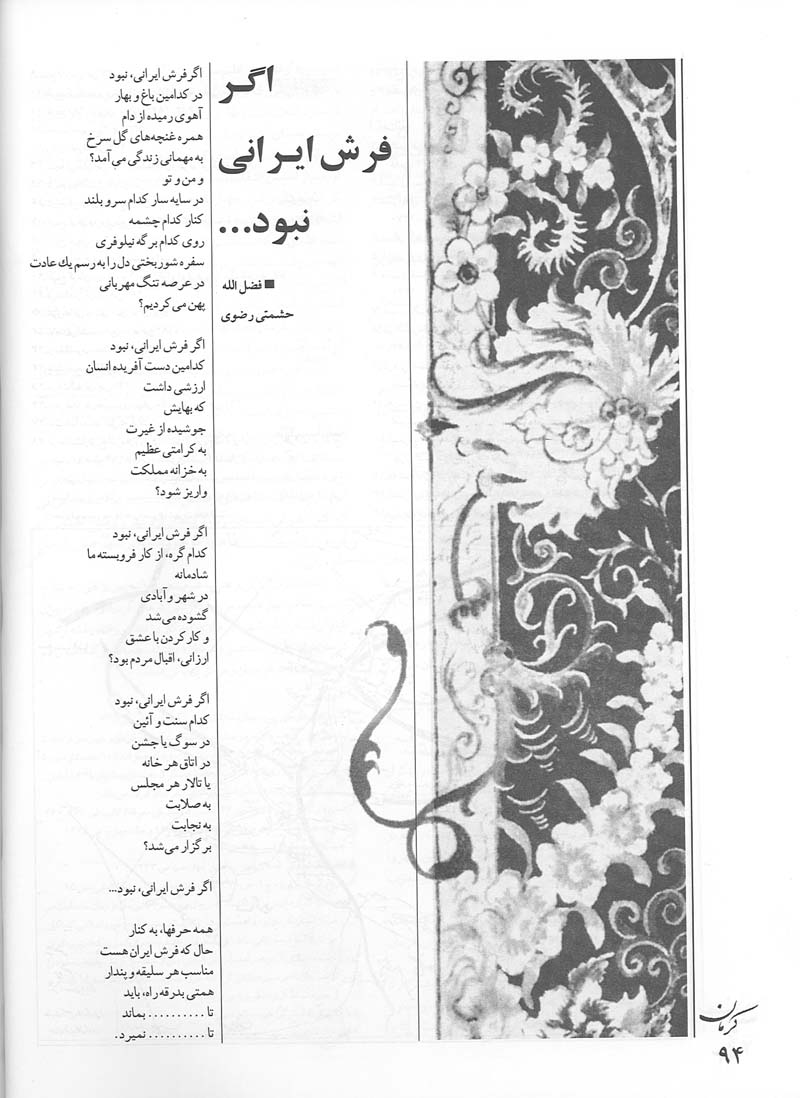 اگر
فرش ایرانی
نبود...
■ فضل الله
حشمتی رضوی
اگر فرش ایرانی، نبود
در کدامین باغ و بهار
آهوی رمیده از دام
همره غنچه‌های گل سرخ
به مهمانی زندگی می‌آمد؟
و من و تو
در سایه سار کدام سرو بلند
کنار کدام چشمه
روی کدام برگه نیلوفری
سفره شوربختی دل را به رسم یك عادت
در عرصه تنگ مهربانی
پهن می‌کردیم؟
اگر فرش ایرانی، نبود
کدامین دست آفریده انسان
ارزشی داشت
که بهایش
جوشیده از غیرت
به کرامتی عظیم
به خزانه مملکت
واریز شود؟
اگر فرش ایرانی، نبود
کدام گره، از کار فروبسته ما
شادمانه
در شهر و آبادی
گشوده می‌شد
و کار کردن با عشق
ارزانی، اقبال مردم بود؟
اگر فرش ایرانی، نبود
کدام سنت و آئین
در سوگ یا جشن
در اتاق هر خانه
یا تالار هر مجلس
به صلابت
به نجابت
برگزار می‌شد؟
اگر فرش ایرانی، نبود...
همه حرفها، به کنار
حال که فرش ایران هست
مناسب هر سلیقه و پندار
همتی بدرقه راه، باید
تا .......... بماند
تا .......... نمیرد.
کرمان
۹۴